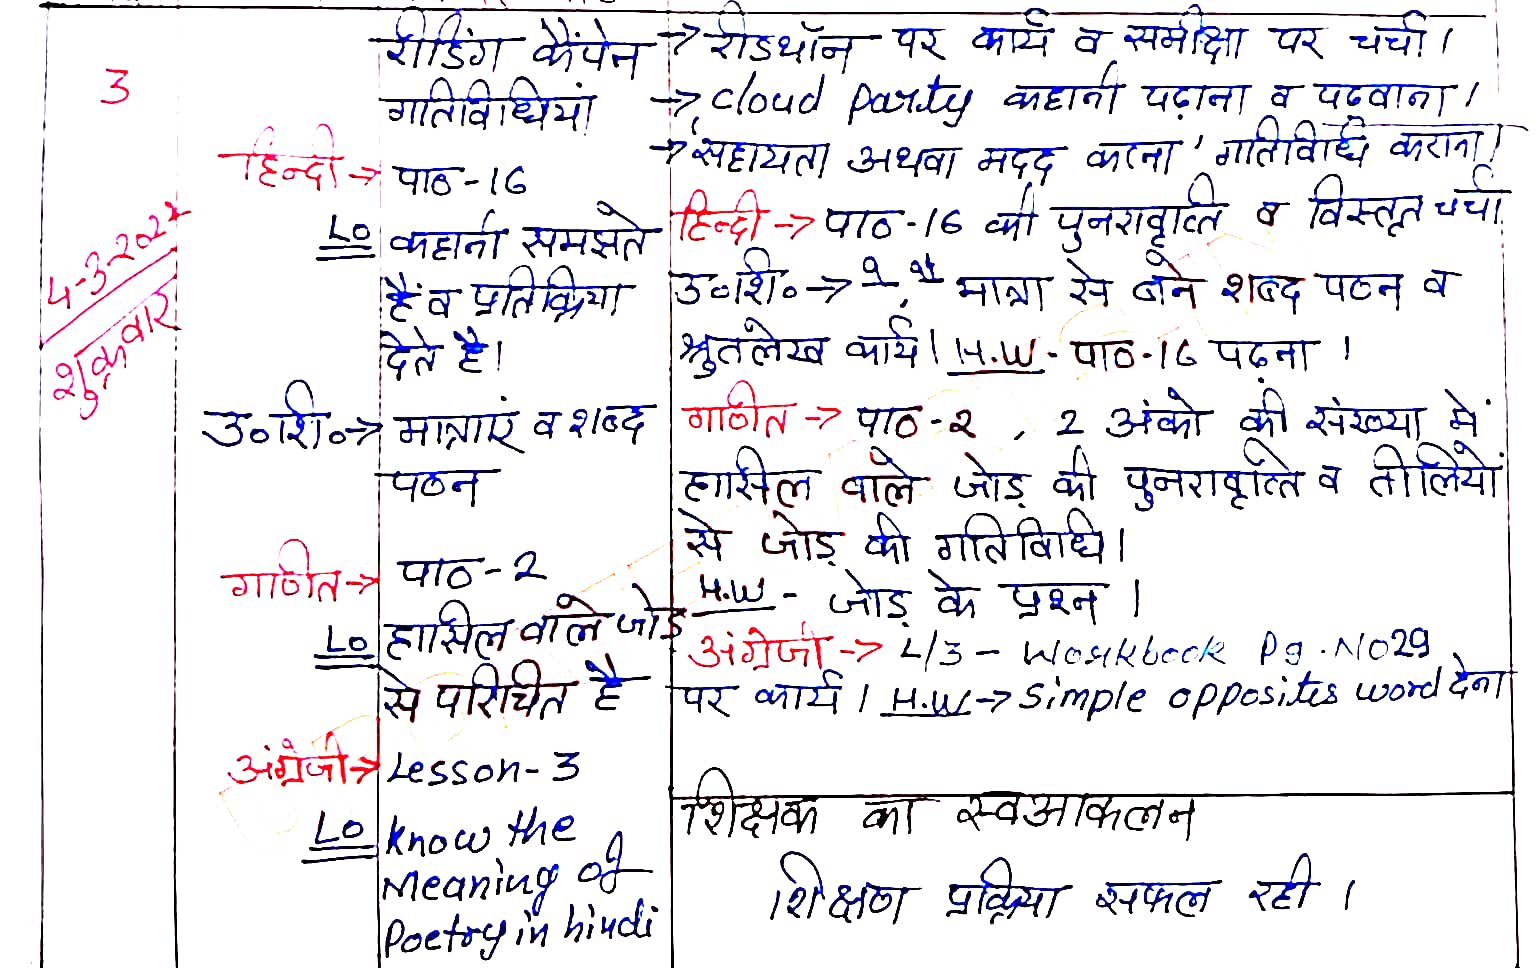 3
4-3-2022
शुक्रवार
रीडिंग कैंपेन
गतिविधियां
हिन्दी → पाठ-16
LO कहानी समझते
हैं व प्रतिक्रिया
देते है।
उ०शि०→ मात्राएं व शब्द
पठन
गणित→ पाठ-2
LO हासिल वाले जोड़
से परिचित है
अंग्रेजी→ Lesson-3
LO Know the
Meaning of
Poetry in hindi
→ रीडथॉन पर कार्य व समीक्षा पर चर्चा।
→ Cloud Party कहानी पढ़ाना व पढवाना।
→ 'सहायता अथवा मदद करना' गतिविधि कराना।
हिन्दी → पाठ-16 की पुनरावृत्ति व विस्तृत चर्चा
उ०शि०→ मात्रा से बने शब्द पठन व
श्रुतलेख कार्य। H.W- पाठ-16 पढ़ना।
गणित → पाठ-2, 2 अंको की संख्या में
हासिल वाले जोड़ की पुनरावृत्ति व तीलियों
से जोड़ की गतिविधि।
H.W - जोड़ के प्रश्न।
अंग्रेजी → L/3 - Workbook Pg.NO29
पर कार्य। H.W→ Simple opposites word देना
शिक्षक का स्वआकलन
शिक्षण प्रक्रिया सफल रही।